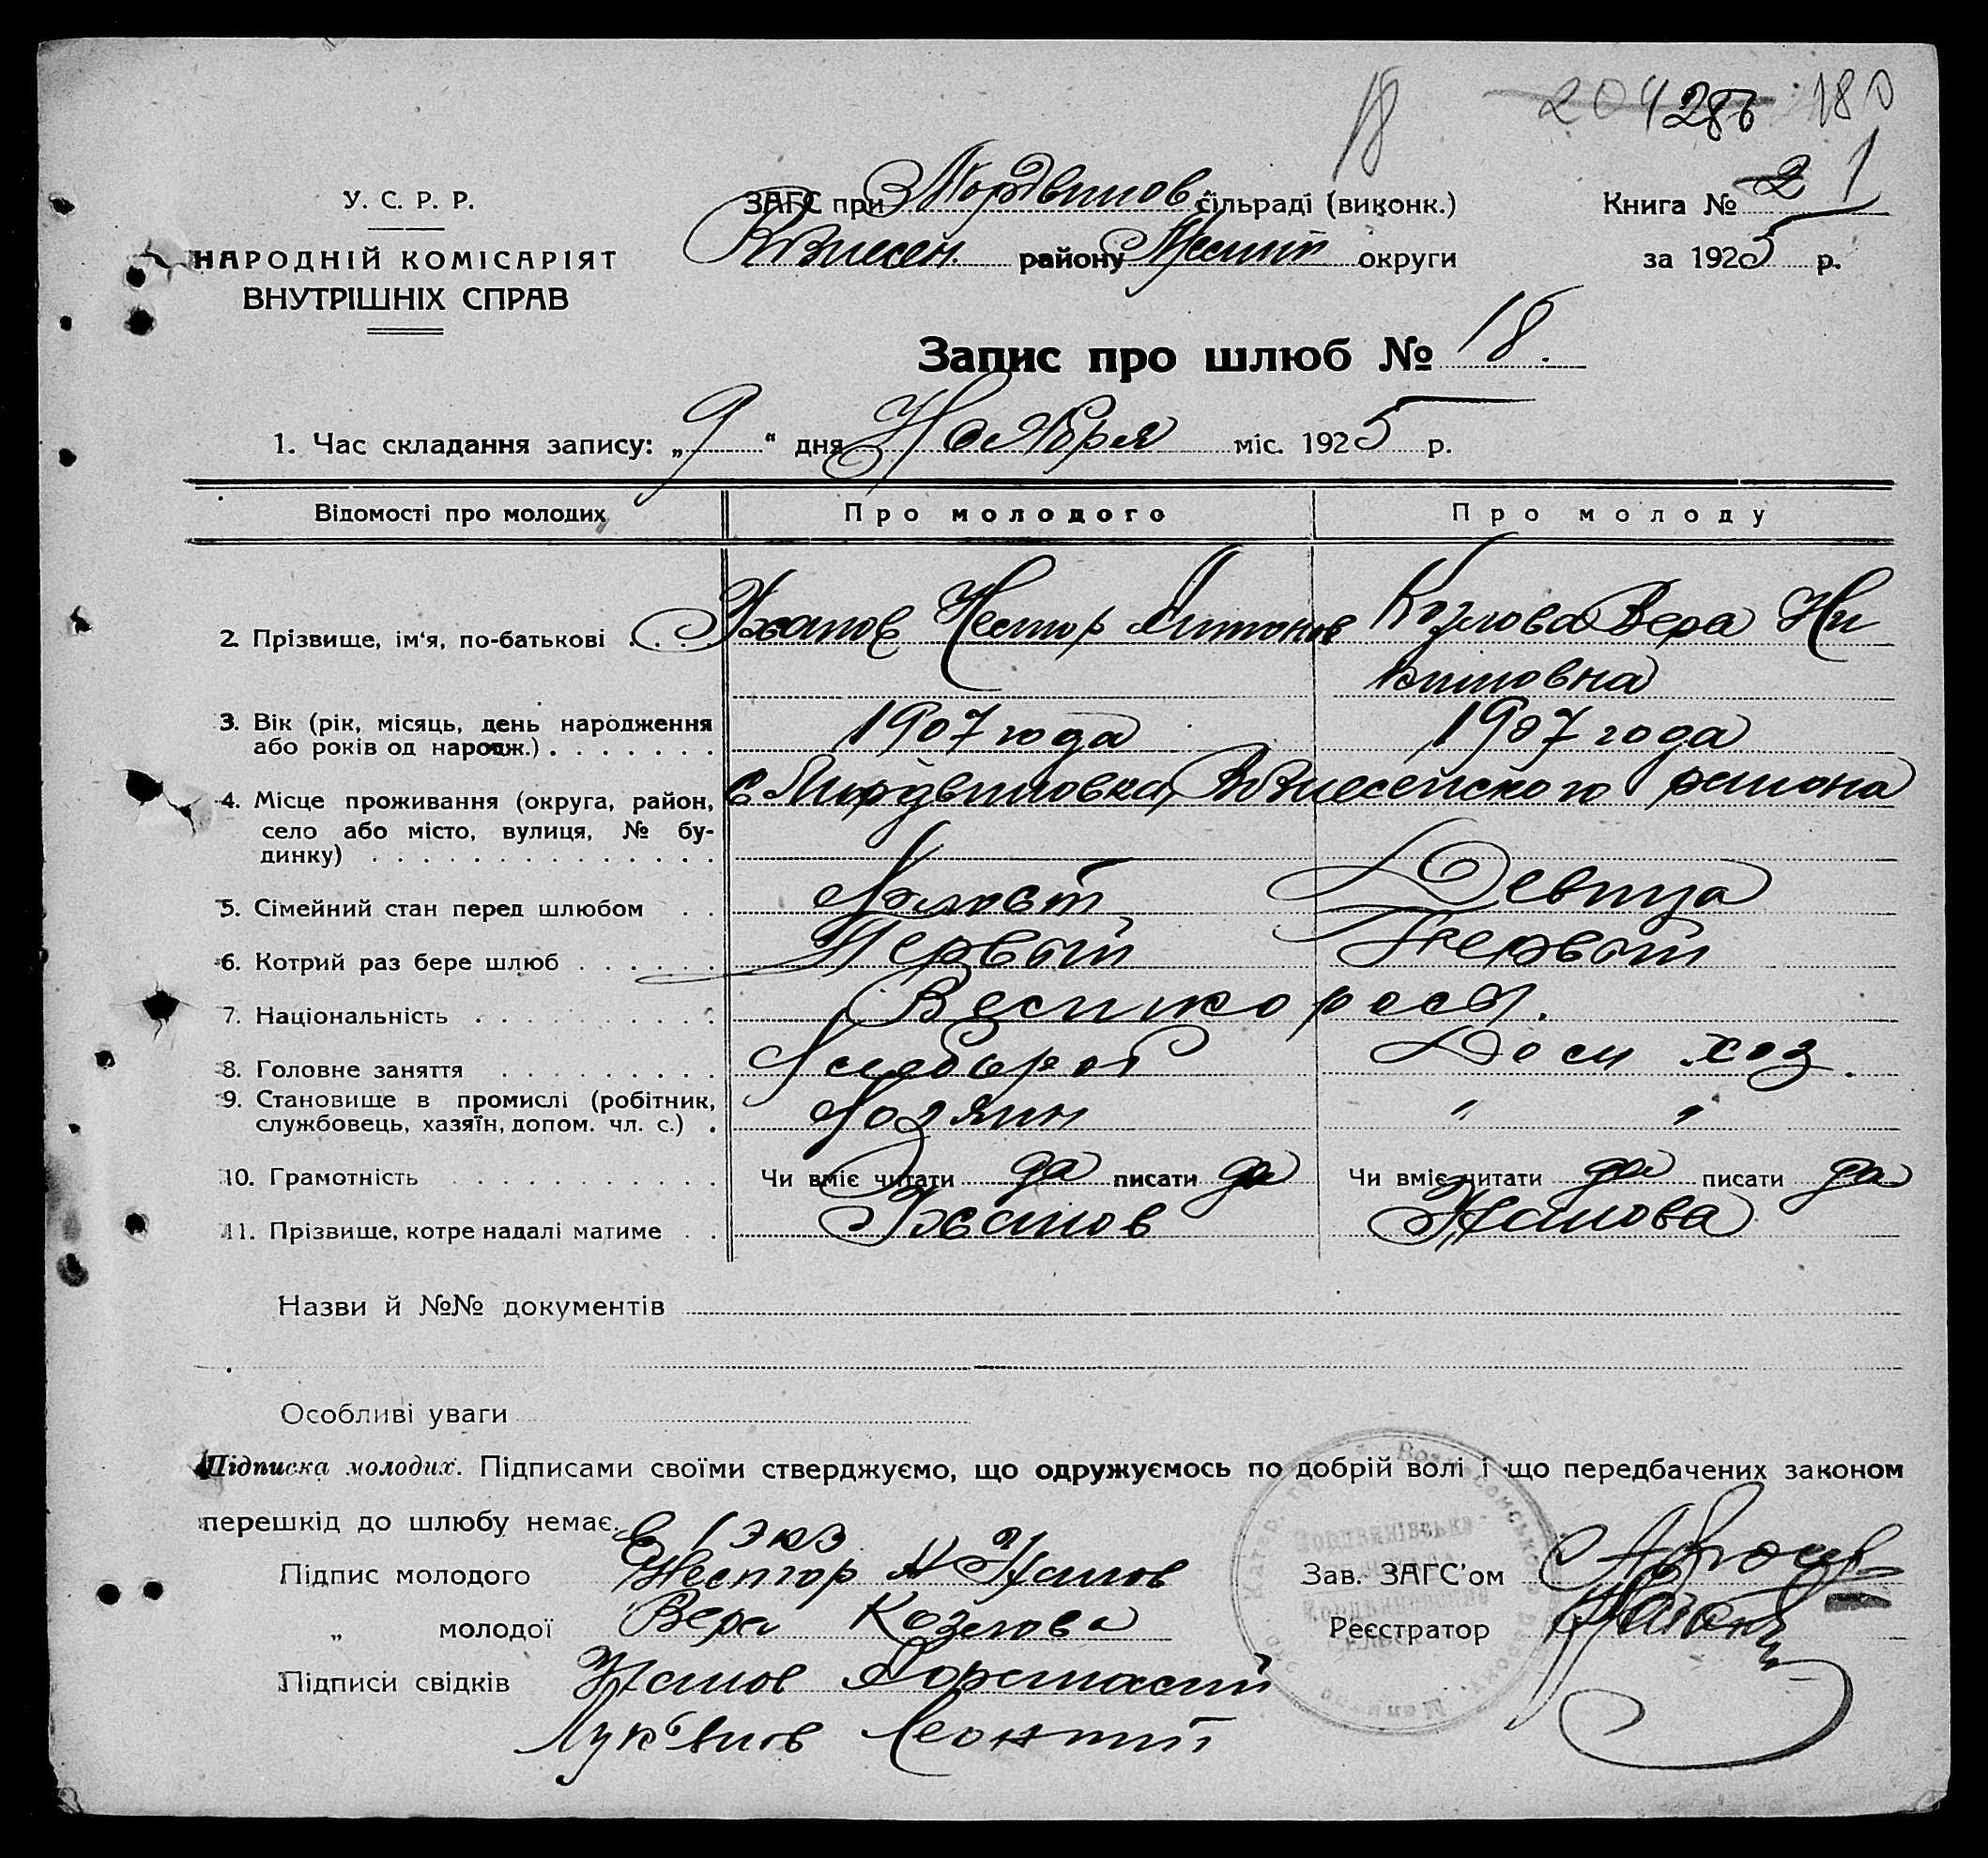 18 204 286 180
У. С. Р. Р.
ЗАГС при Мордвинов сільраді (виконк.)
Книга № 2 1
НАРОДНІЙ КОМІСАРІЯТ
ВНУТРІШНІХ СПРАВ
району округи
за 1925 р.
Запис про шлюб № 18.
1. Час складання запису: „9“ дня Ноября міс. 1925 р.
Відомості про молодих
Про молодого
Про молоду
2. Прізвище, ім'я, по-батькові . . .
Нестор Антонов
Козлова Вера Ни
китовна
3. Вік (рік, місяць, день народження
або років од народж.) . . . . . . .
1907 года
1907 года
4. Місце проживання (округа, район,
село або місто, вулиця, № бу-
динку) . . . . . . . . . . . . . .
с Мордвиновка, Вознесенского района
5. Сімейний стан перед шлюбом . .
Холост
Девица
6. Котрий раз бере шлюб . . . . . .
Первый
Первый
7. Національність . . . . . . . . . .
Великоросы.
8. Головне заняття . . . . . . . . .
Хлебороб
Дом хоз.
9. Становище в промислі (робітник,
службовець, хазяїн, допом. чл. с.) .
Хозяин
" "
10. Грамотність . . . . . . . . . . .
Чи вміє читати да писати да
Чи вміє читати да писати да
11. Прізвище, котре надалі матиме . .
Назви й №№ документів
Особливі уваги
Підписка молодих. Підписами своїми стверджуємо, що одружуємось по добрій волі і що передбачених законом
перешкід до шлюбу немає.
1 экз
Підпис молодого Нестор
Зав. ЗАГС'ом
„ молодої Вера Козлова
Реєстратор
Підписи свідків
Леонтий